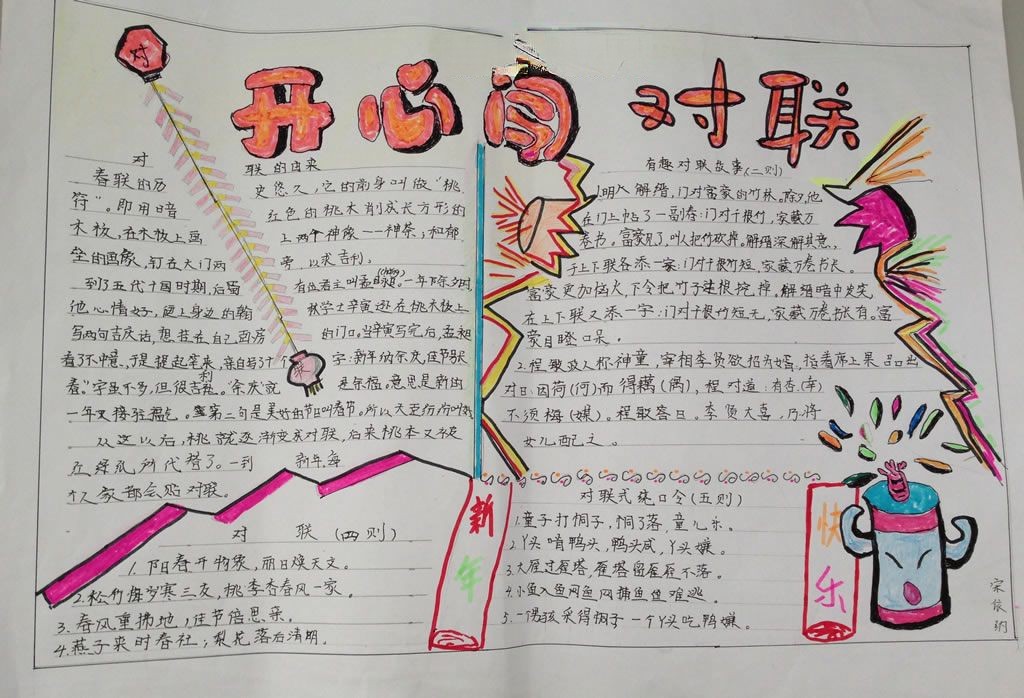 对
开心闯 对联
对 联的由来
春联的历 史悠久，它的前身叫做“桃
符”。即用暗 红色的桃木削成长方形的
木板，在木板上画 上两个神像——神荼；和郁
垒的画像，钉在大门两 旁，以求吉利；
到了五代十国时期，后蜀 有位君主叫孟昶。一年下除夕时，
他心情好，便上身边的翰 林学士辛寅逊在桃木板上
写两句吉庆话，想挂在自己画房 的门口。当辛寅写完后，孟昶
看了不中意，于是提起笔来，亲自写了个 字：新年纳余庆，佳节号长
春。”字虽不多，但很吉利。“余庆”就 是余福。意思是新的
一年又接驻福气。第二句是美好的节日叫春节。所以大王
从这以后，桃 就逐渐变成对联，后来桃木又被
红绿纸所代替了。一到 新年，每
个人家都会贴对联。
对 联（四则）
1. 阳春开物象，丽日焕天文。
2. 松竹梅岁寒三友，桃李杏春风一家。
3. 春风重拂地；佳节倍思亲。
4. 燕子来时春社；梨花落后清明。
新年
有趣对联故事（二则）
1.明人解缙，门对富家的竹林。除夕，他
在门上帖了一副春：门对千根竹，家藏万
卷书。富豪见了，叫人把竹砍掉。解缙深解其意，
于上下联各添一家：门对千根竹短，家藏万卷书长。
富豪更加恼火，下令把竹子连根挖掉，解缙暗中发笑，
在上下联又添一字：门对千根竹短无，家藏万卷书长有。富
豪目瞪口呆。
2. 程敏政人称神童，宰相李贤欲招为婿，指着席上果品口出
对曰：因荷（何）而得藕（偶），程对道：有杏（幸）
不须梅（媒）。程敏答曰。李贤大喜，乃将
女儿配之。
对联式绕口令（五则）
1. 童子打桐子，桐子落，童儿乐。
2. 丫头啃鸭头，鸭头咸，丫头嫌。
3. 大雁过雁塔，雁塔留雁雁不落。
4. 小鱼入鱼网鱼网捕鱼鱼难逃。
5. 一偶孩采得桐子一个丫头吃鸭嫌。
快乐